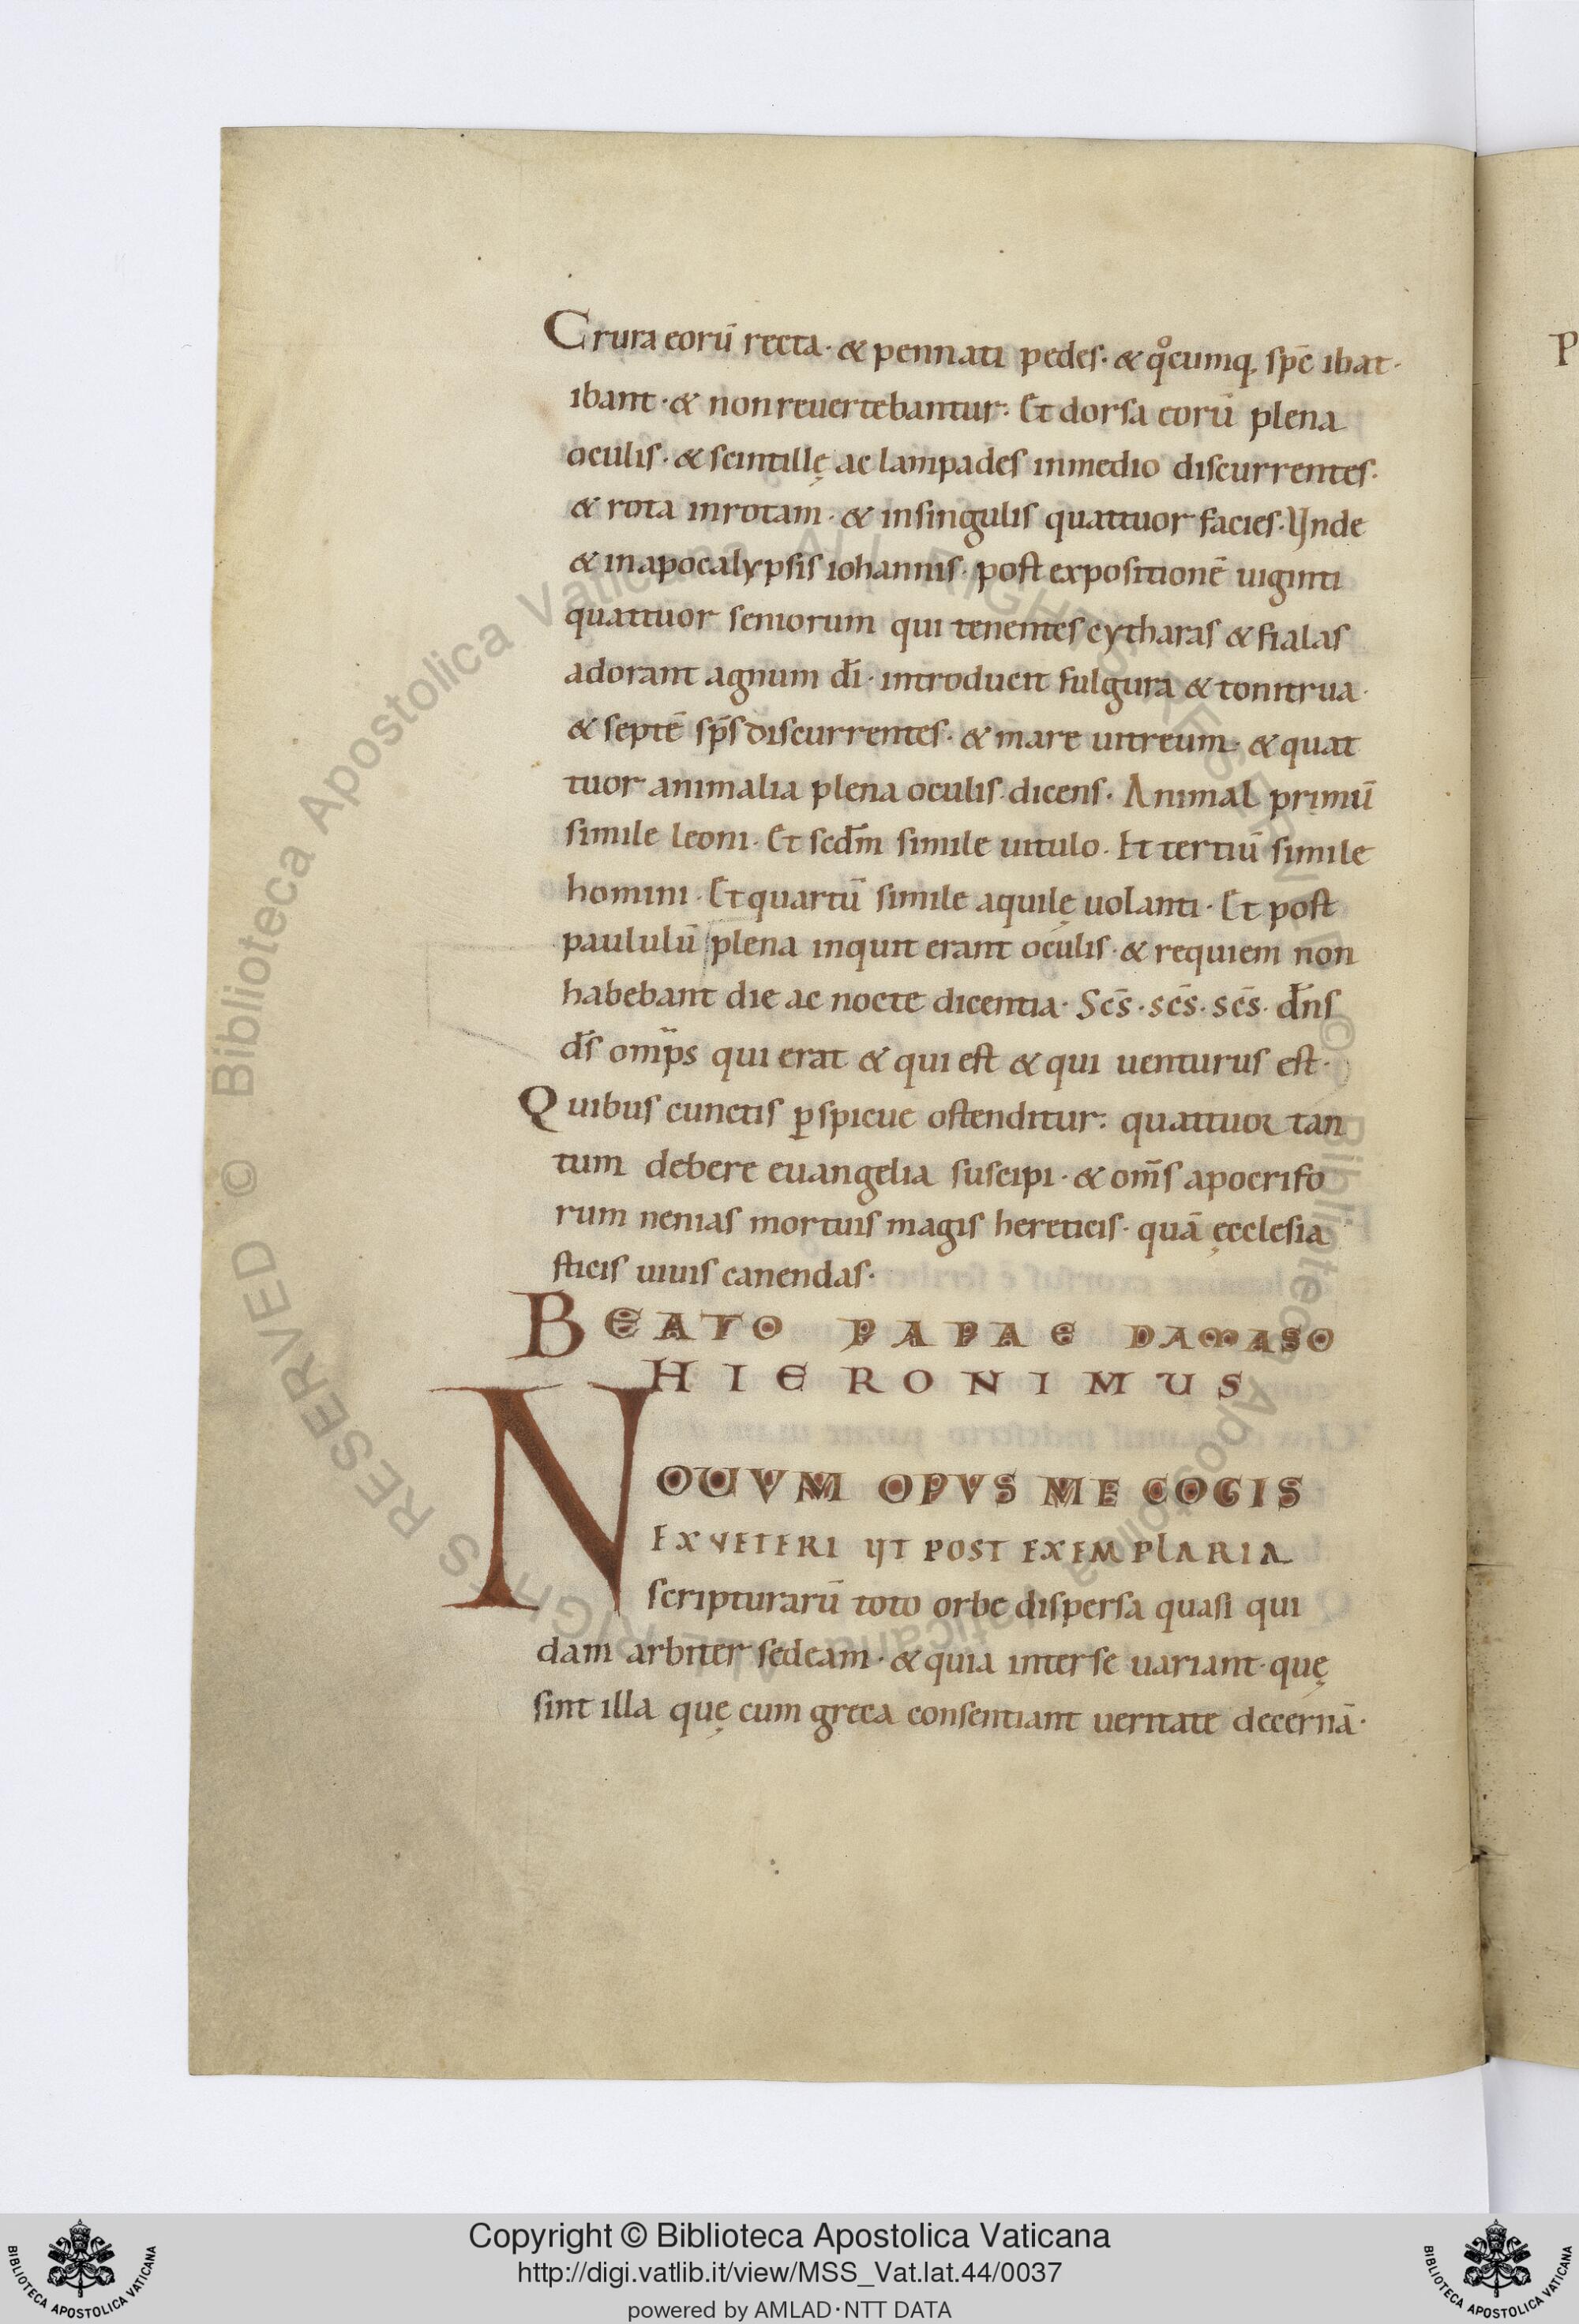 Crura eorū recta· & pennati pedes· & qͦcumq; sp̄c ibat·
ibant· & non reuertebantur: Et dorsa eorū plena
oculis· & scintillę ac lampades in medio discurrentes·
& rota in rotam· & in singulis quattuor facies· Vnde
& in apocalypsis iohannis· post expositionē uiginti
quattuor seniorum qui tenentes cytharas & fialas
adorant agnum dī· introducit fulgura & tonitrua·
& septē sp̄s discurrentes· & mare uitreum· & quat
tuor animalia plena oculis· dicens· Animal primū
simile leoni· Et scd̄m simile uitulo· Et tertiū simile
homini· Et quartū simile aquilę uolanti· Et post
paululū plena inquit erant oculis· & requiem non
habebant die ac nocte dicentia· Sc̄s· sc̄s· sc̄s· dn̄s
d̄s omp̄s qui erat & qui est & qui uenturus est·
Quibus cunctis ꝑspicue ostenditur: quattuor tan
tum debere euangelia suscipi· & om̄s apocrifo
rum nenias mortuis magis hereticis· quā ęcclesia
sticis uiuis canendas·
BEATO PAPAE DAMASO
HIERONIMUS
NOUVM OPVS ME COGIS
EX VETERI VT POST EXEMPLARIA
scripturarū toto orbe dispersa quasi qui
dam arbiter sedeam· & quia inter se uariant· quę
sint illa quę cum greca consentiant ueritate decernā·
P
Copyright © Biblioteca Apostolica Vaticana
http://digi.vatlib.it/view/MSS_Vat.lat.44/0037
powered by AMLAD·NTT DATA
BIBLIOTECA APOSTOLICA VATICANA
BIBLIOTECA APOSTOLICA VATICANA
© Biblioteca Apostolica Vaticana ALL RIGHTS RESERVED © Biblioteca Apostolica Vaticana ALL RIGHTS RESERVED